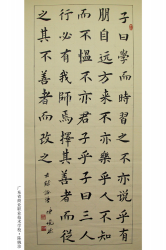 子曰學而時習之不亦說乎有
朋自遠方來不亦樂乎人不知
而不慍不亦君子乎子曰三人
行必有我師焉擇其善者而從
之其不善者而改之